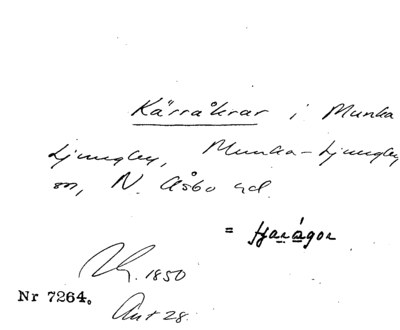 Kärråkrar i Munka
Ljungby, Munka-Ljungby
sn, N. Åsbo hd.
= tjaràgor
1850
Nr 7264.
Ant 28.